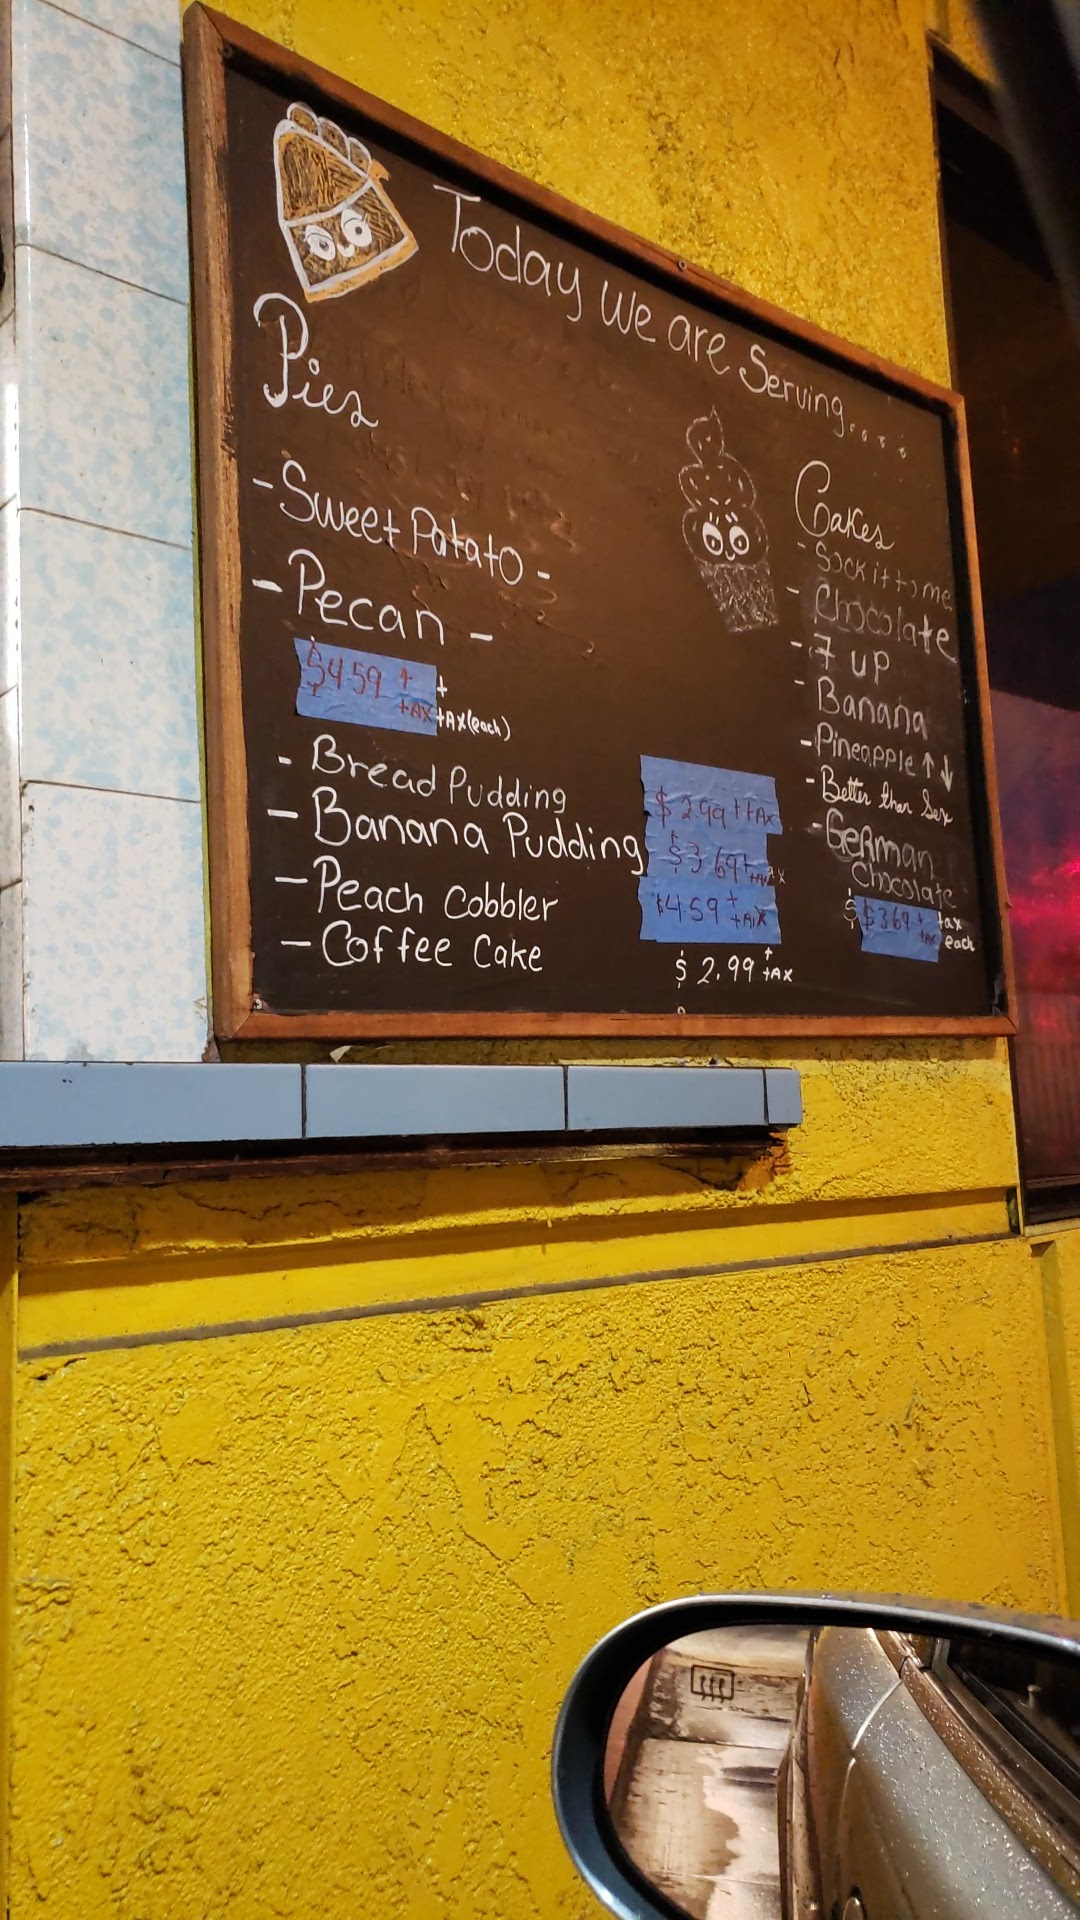 Today we are Serving....
Pies
- Sweet Patato -
- Pecan -
$4.59 + +
+AX +AX(each)
- Bread Pudding $2.99 + tAX
- Banana Pudding $3.69 + tAx
- Peach Cobbler $4.59 + tAX
- Coffee Cake $2.99 + tAX
Cakes
- Sock it to me
- Chocolate
- 7 up
- Banana
- Pineapple ↑↓
- Better than Sex
- German
Chocolate
$ $3.69 + tax
tax each